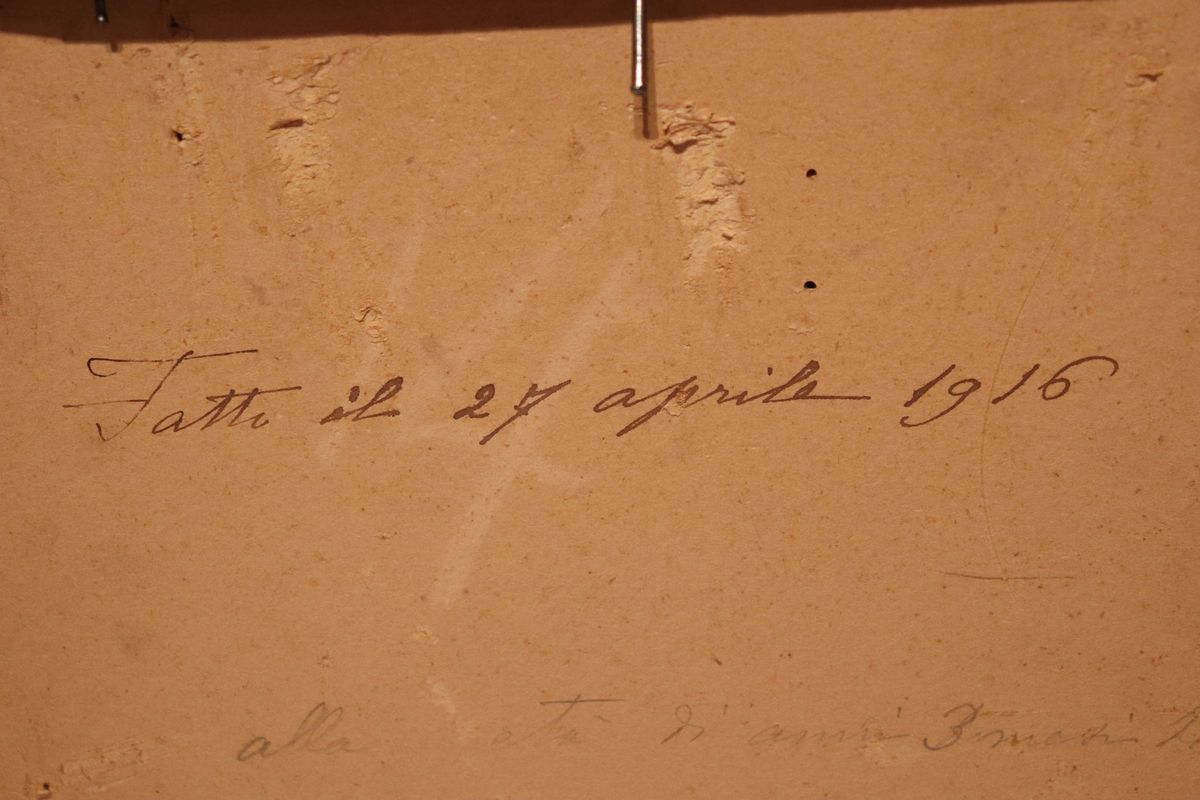 Fatto il 27 aprile 1916
alla età di anni 3 mesi